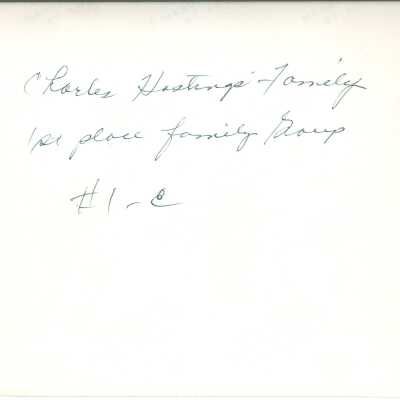 Charles Hastings' Family
1st place family Group
#1-C